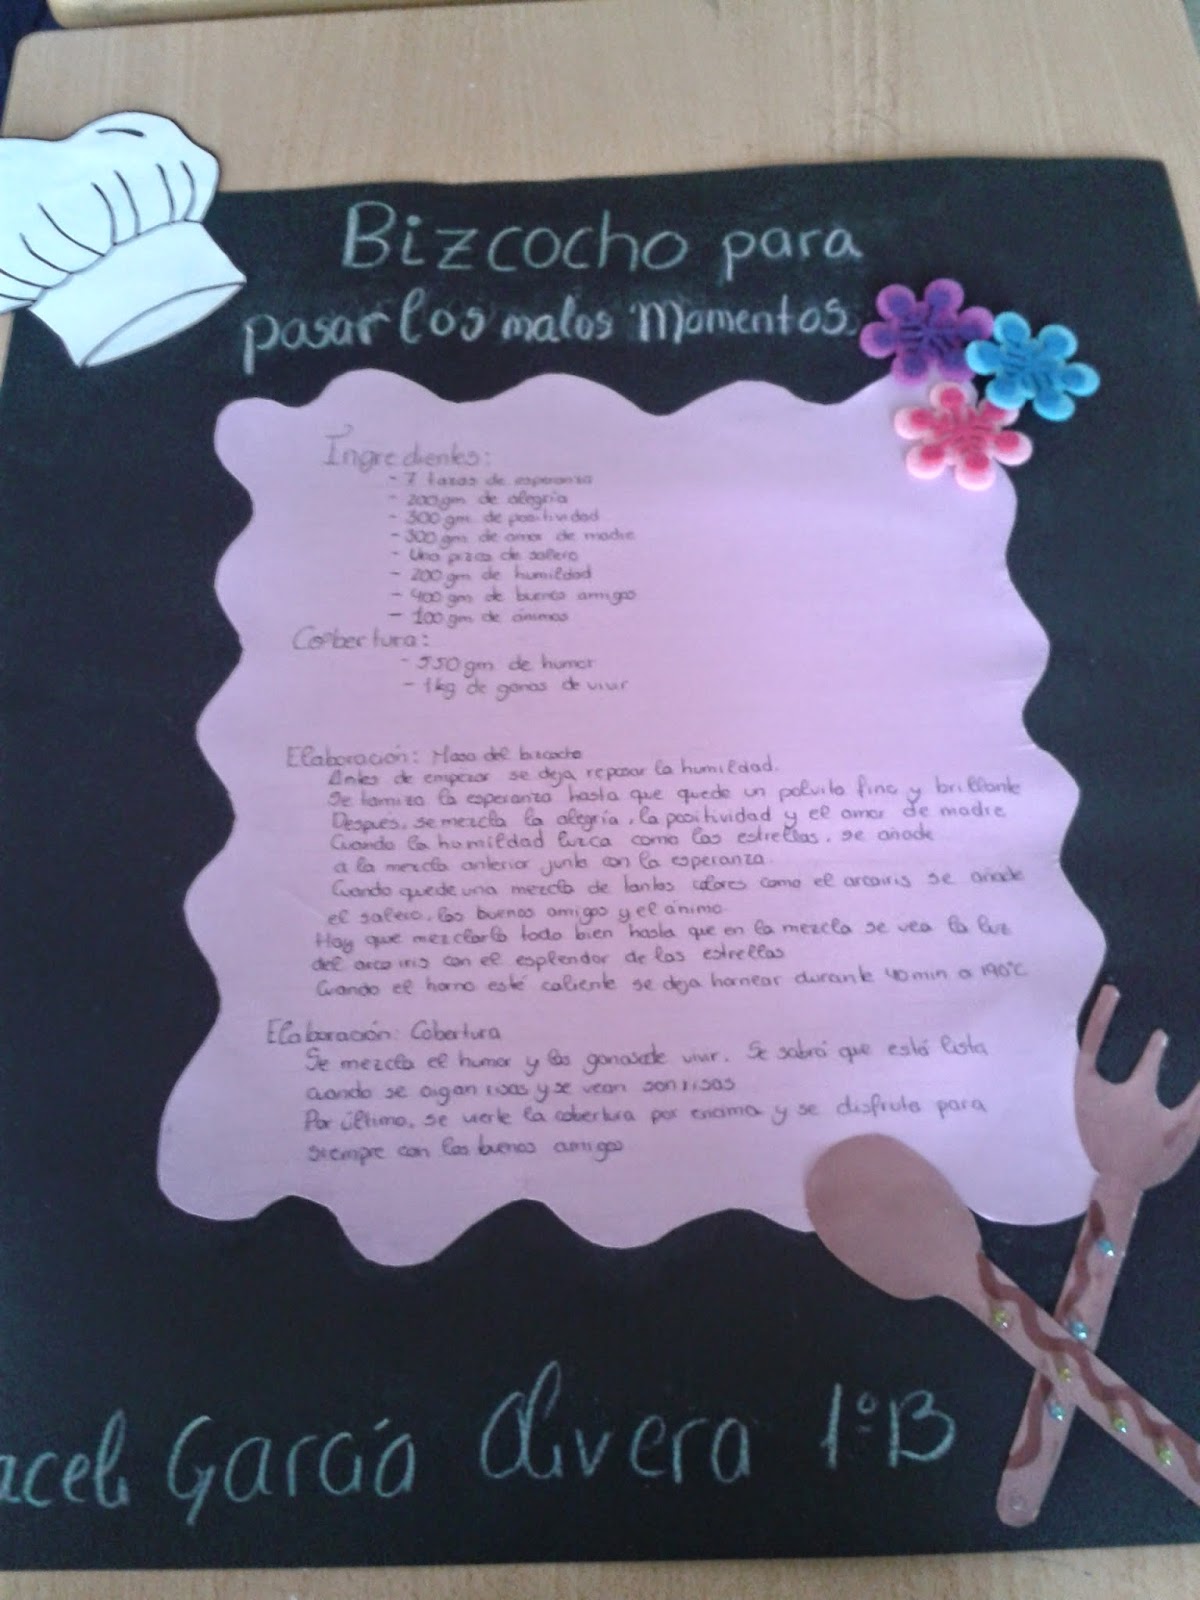 Bizcocho para
pasar los malos Momentos
Ingredientes:
- 7 tazas de esperanza
- 200gm de alegría
- 300gm de positividad
- 300gm de amor de madre
- Una pizca de salero
- 200gm de humildad
- 400gm de buenos amigos
- 100gm de ánimos
Cobertura:
- 550gm de humor
- 1kg de ganas de vivir
Elaboración: Masa del bizcocho
Antes de empezar se deja reposar la humildad.
Se tamiza la esperanza hasta que quede un polvito fino y brillante
Después, se mezcla la alegría, la positividad y el amor de madre
Cuando la humildad luzca como las estrellas, se añade
a la mezcla anterior junto con la esperanza.
Cuando quede una mezcla de tantos colores como el arcoiris se añade
el salero, los buenos amigos y el ánimo.
Hay que mezclarlo todo bien hasta que en la mezcla se vea la luz
del arcoiris con el esplendor de las estrellas
Cuando el horno esté caliente se deja hornear durante 40min a 190°C
Elaboración: Cobertura
Se mezcla el humor y las ganas de vivir. Se sabrá que está lista
cuando se oigan risas y se vean sonrisas
Por último, se vierte la cobertura por encima y se disfruta para
siempre con los buenos amigos
aceli García Olivera 1ºB